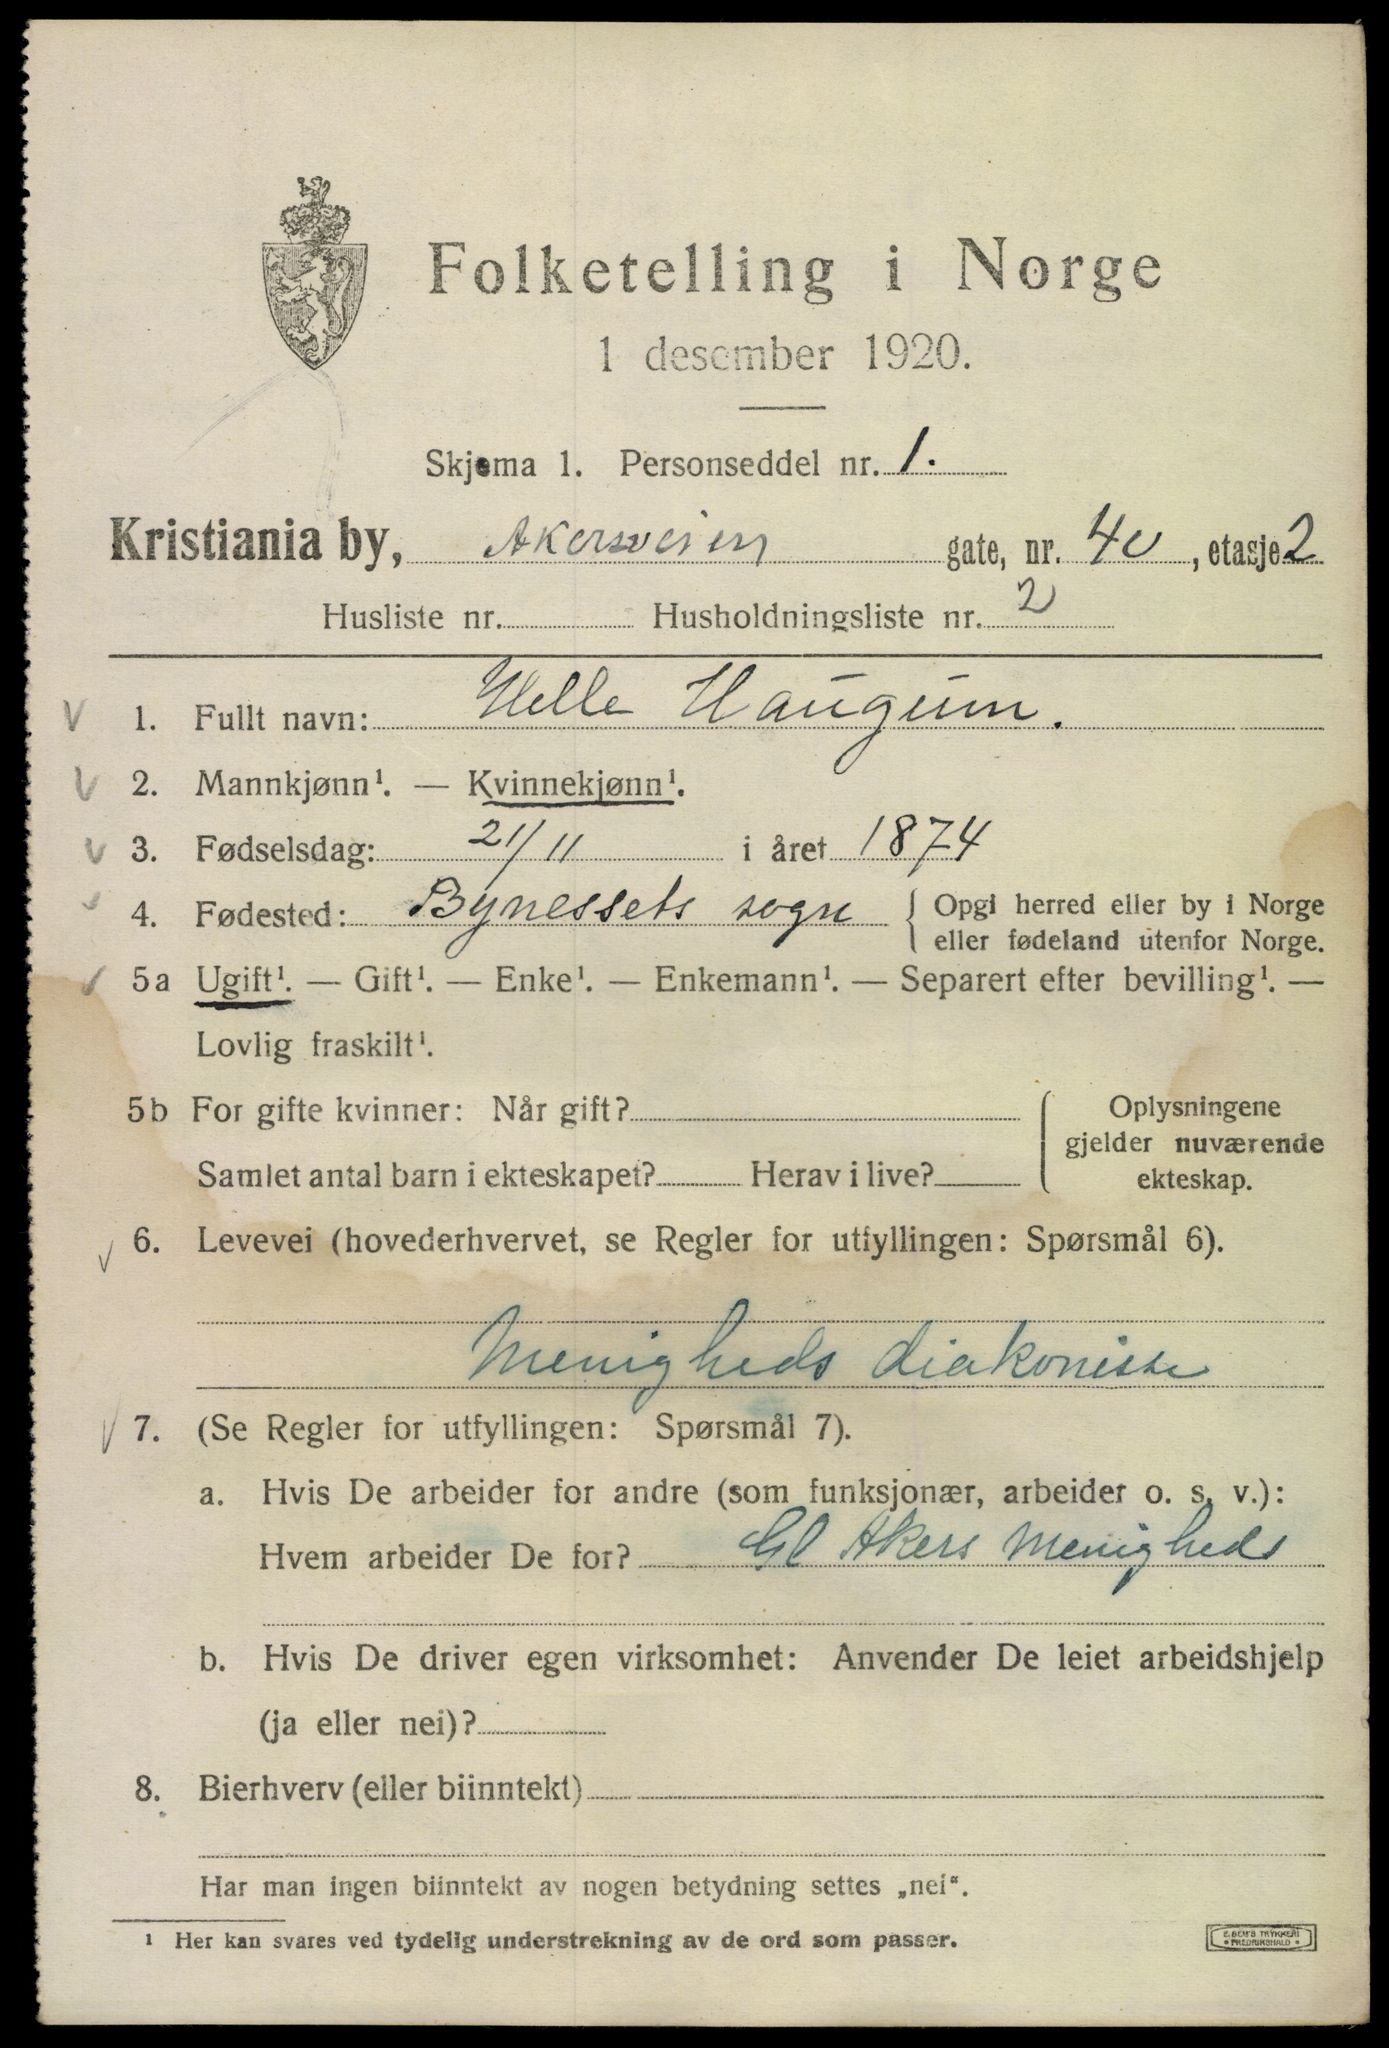 Folketelling i Norge
1 desember 1920.
Skjema 1. Personseddel nr. 1.
Kristiania by, Akersveien gate, nr. 40, etasje 2
Husliste nr. Husholdningsliste nr. 2
1. Fullt navn: Helle Haugum.
2. Mannkjønn¹. — Kvinnekjønn¹.
3. Fødselsdag: 21/11 i året 1874
4. Fødested: Bynessets sogn { Opgi herred eller by i Norge
eller fødeland utenfor Norge.
5a Ugift¹. — Gift¹. — Enke¹. — Enkemann¹. — Separert efter bevilling¹. —
Lovlig fraskilt¹.
5b For gifte kvinner: Når gift? Oplysningene
gjelder nuværende
Samlet antal barn i ekteskapet? Herav i live? ekteskap.
6. Levevei (hovederhvervet, se Regler for utfyllingen: Spørsmål 6).
Menigheds diakonisse
7. (Se Regler for utfyllingen: Spørsmål 7).
a. Hvis De arbeider for andre (som funksjonær, arbeider o. s. v.):
Hvem arbeider De for? Gl Akers Menigheds
b. Hvis De driver egen virksomhet: Anvender De leiet arbeidshjelp
(ja eller nei)?
8. Bierhverv (eller biinntekt)
Har man ingen biinntekt av nogen betydning settes „nei“.
¹ Her kan svares ved tydelig understrekning av de ord som passer.
E. SEM'S TRYKKERI
FREDRIKSHALD